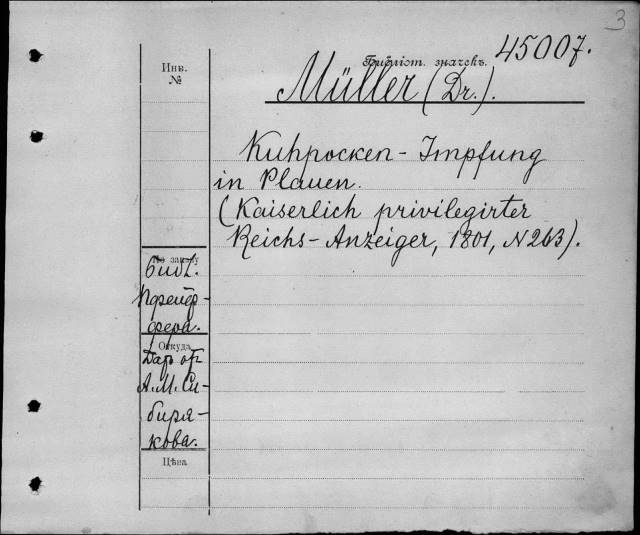 3
Библіот. значекъ. 45007.
Инв.
№
Müller (Dr.).
Kuhpocken-Impfung
in Plauen.
(Kaiserlich privilegirter
Reichs-Anzeiger, 1801, N263).
По заказу
библ.
Пфейф-
фера.
Откуда
Даръ отъ
А.М.Си-
биря-
кова.
Цѣна